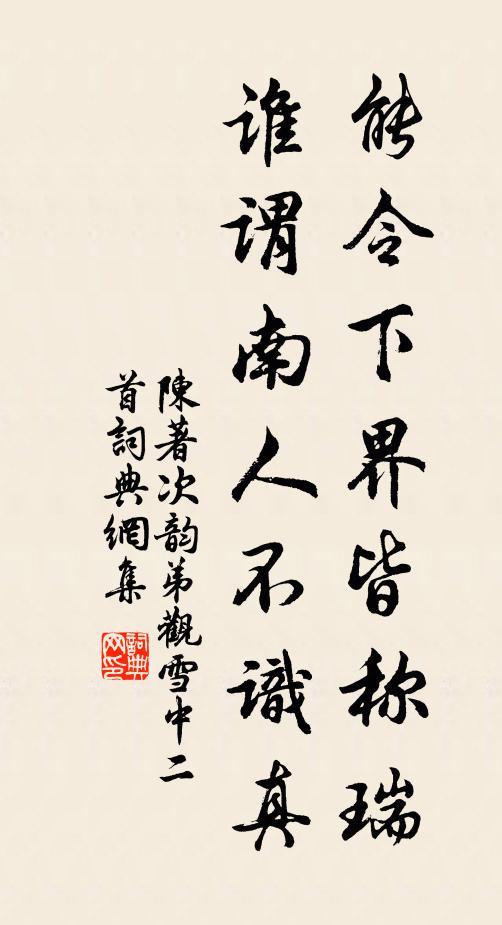 能令下界皆称瑞
谁谓南人不識真
陳著次韵弟觀雪中二
首詞典網集
詞典
网印